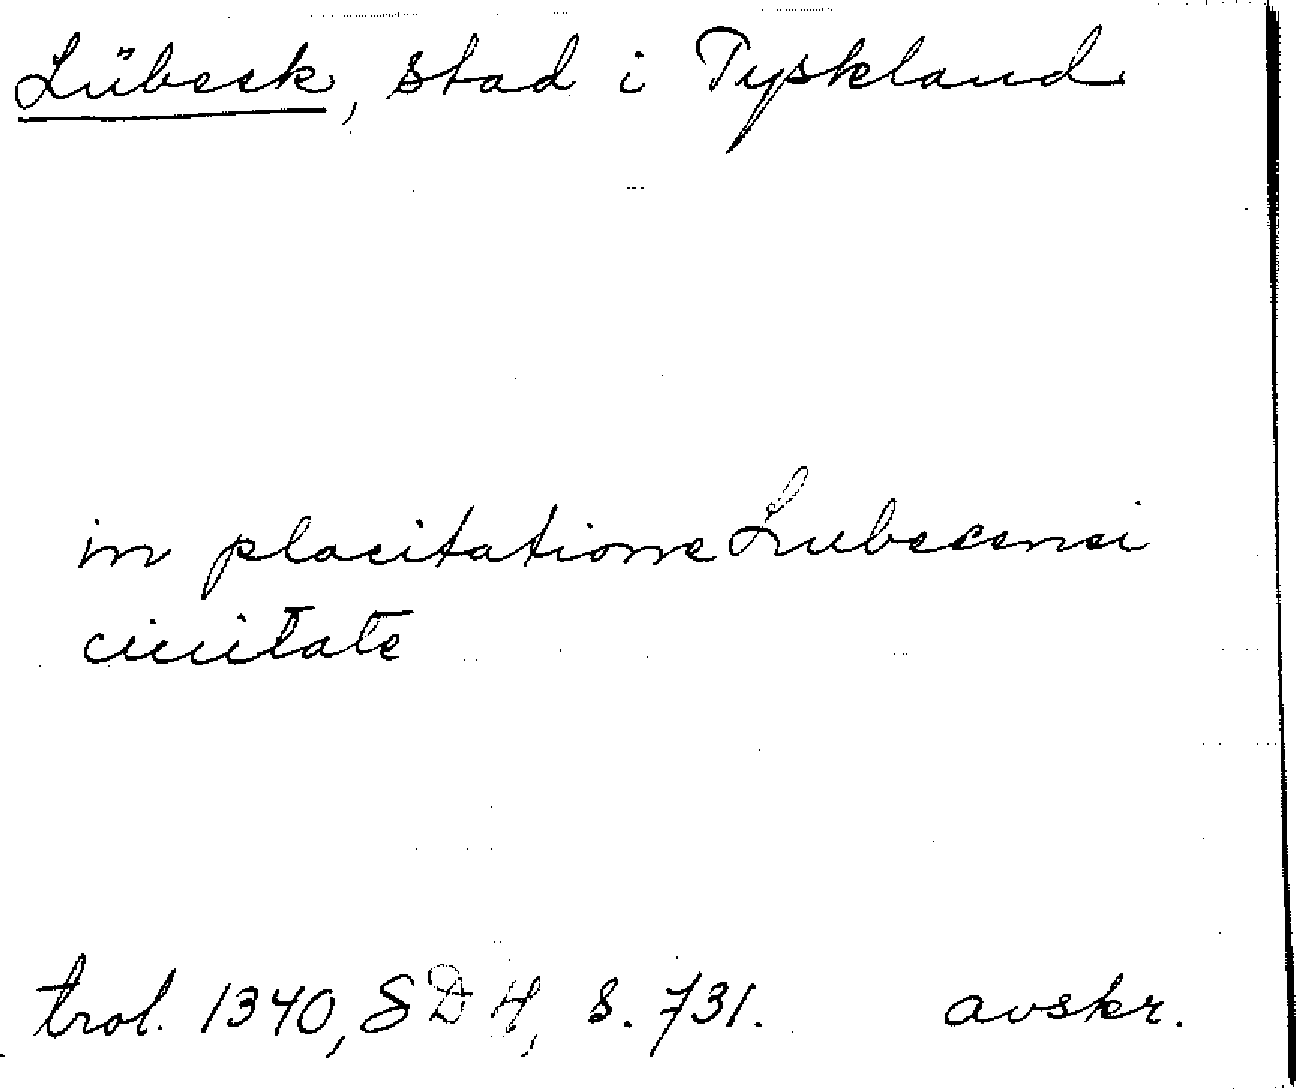 Lübeck, stad i Tyskland
in placitatione Lubecensi
ciuitate
trol. 1340, SD 4, s. 731. avskr.